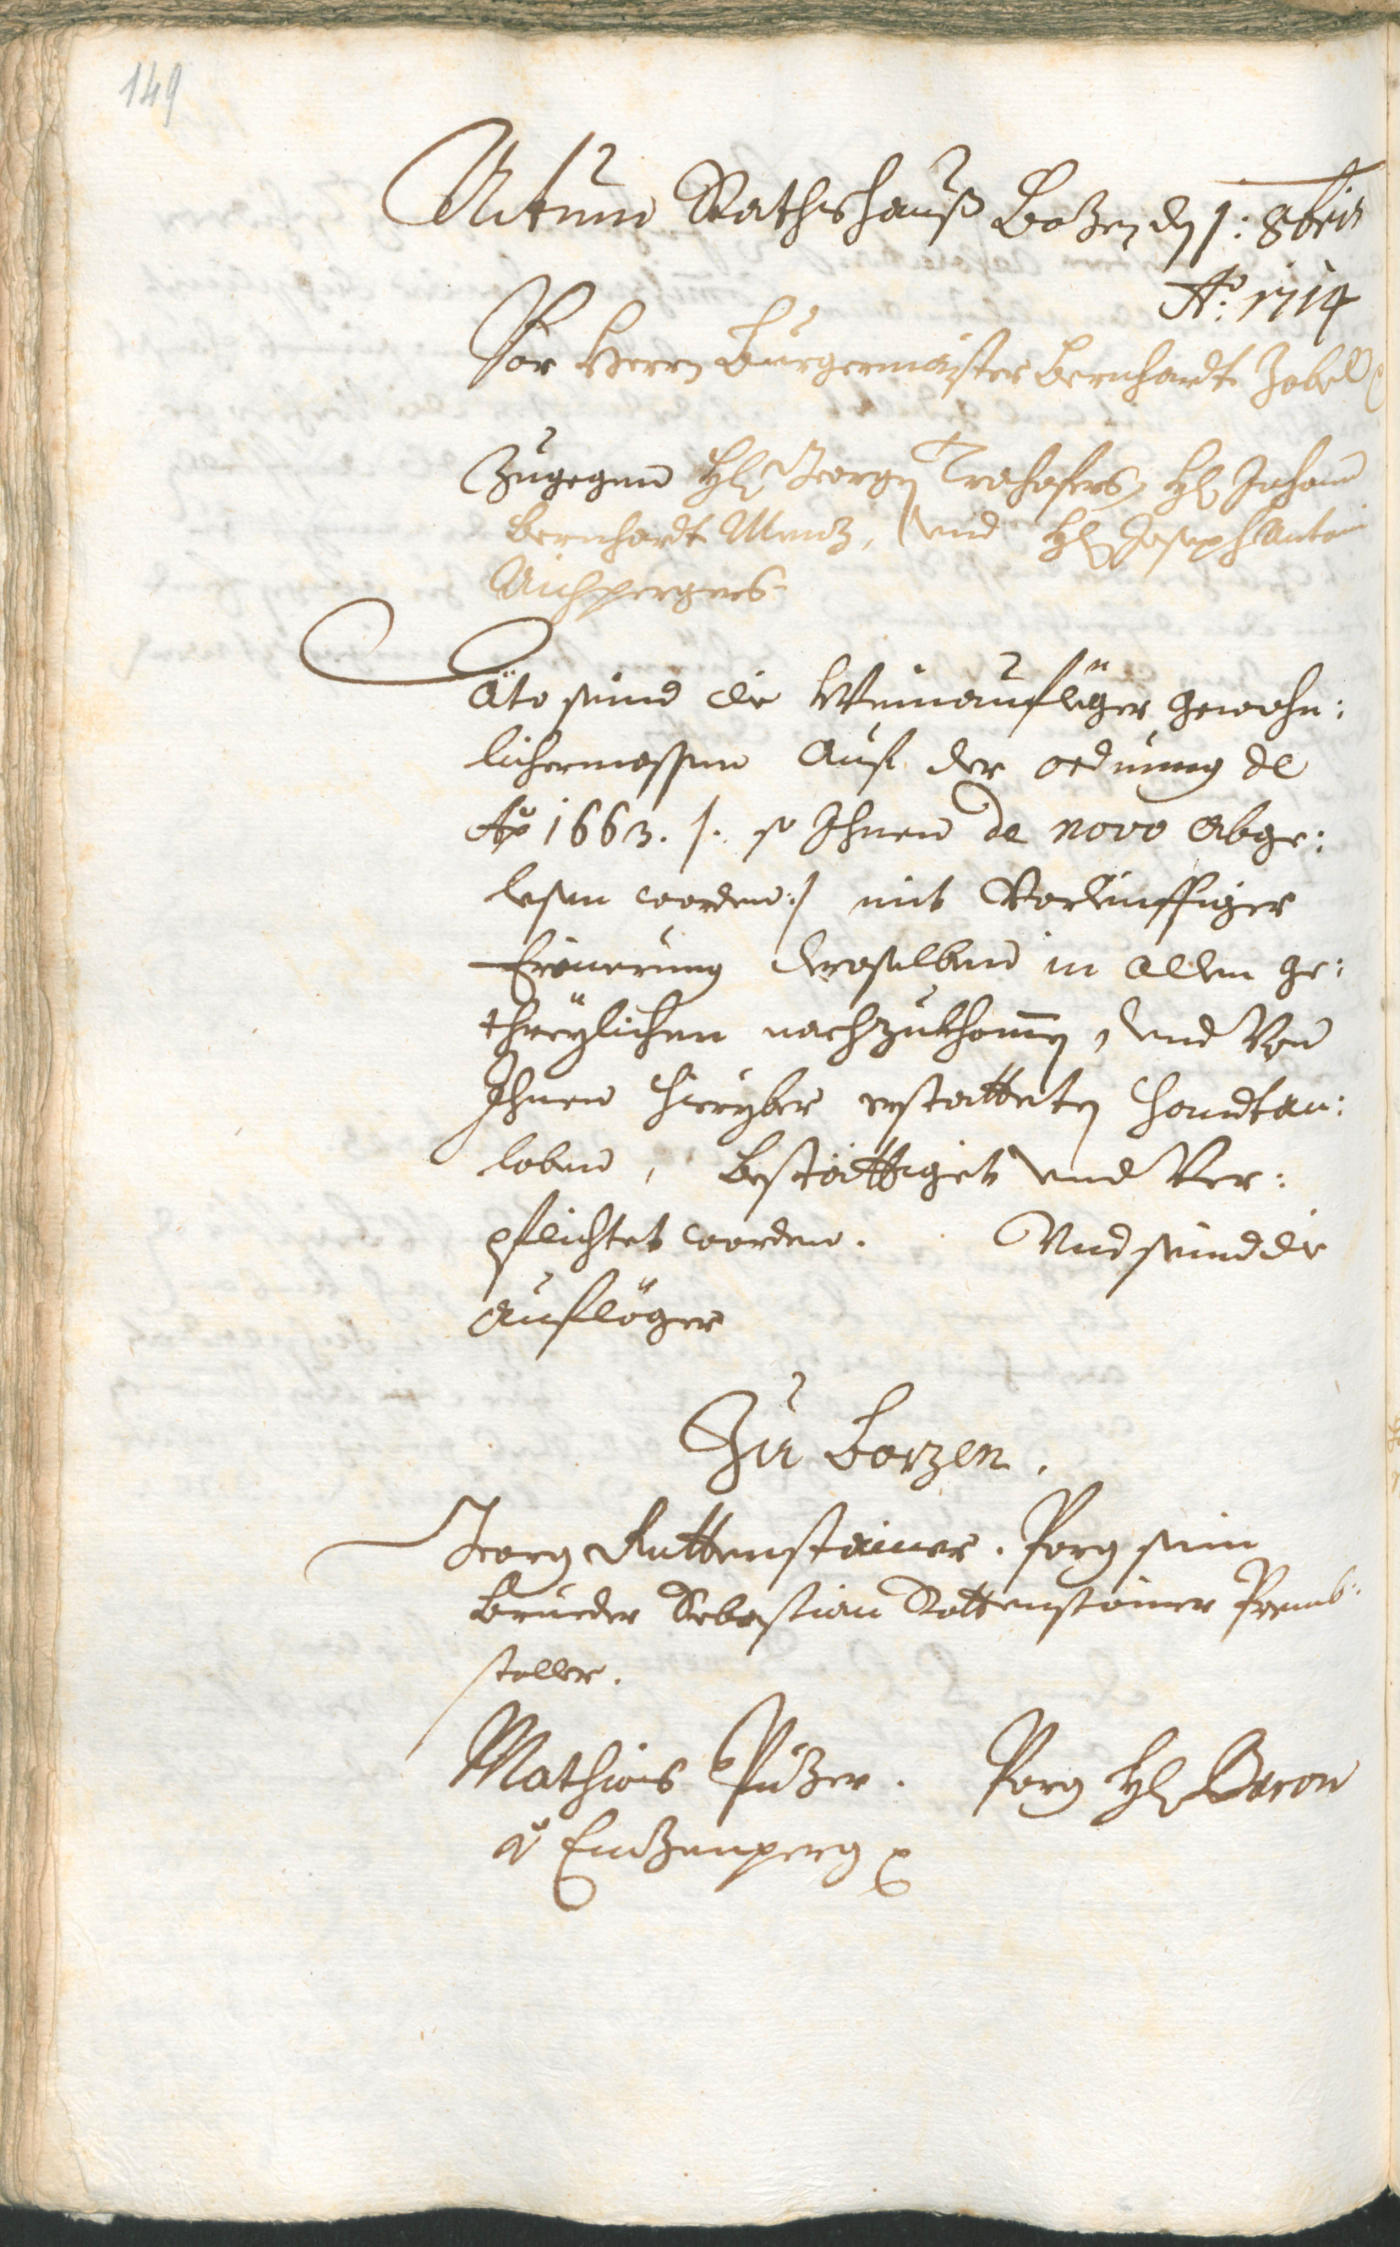 149
Actum Rathshauß Bozen den 1: 8bris
Ao: 1714
Vor Herrn Burgermaister Bernhardt Zobel
Zugegen Hl Georgen Trohofers, Hl Johann
Bernhardt Menz, und Hl Joseph Antoni
Aichpergers
Däto seind die Weinaufläger gewohn:
lichermassen Auf der ordnung de
Ao 1663. /: so Ihnen de novo Abge:
lesen worden :/ mit Vorleuffiger
Erinerung deroselben in allem ge:
threylichen nachzukhomen, und Von
Ihnen hieryber erstatteten Handtan:
loben, bestättiget und Ver:
pflichtet worden. Und seind die
Auflöger
Zu Bozen.
Georg Ruttenstainer. Porg sein
Brueder Sebastian Rottenstainer Prems:
staller.
Mathias Puzer. Porg Hl Baron
v Enzenperg